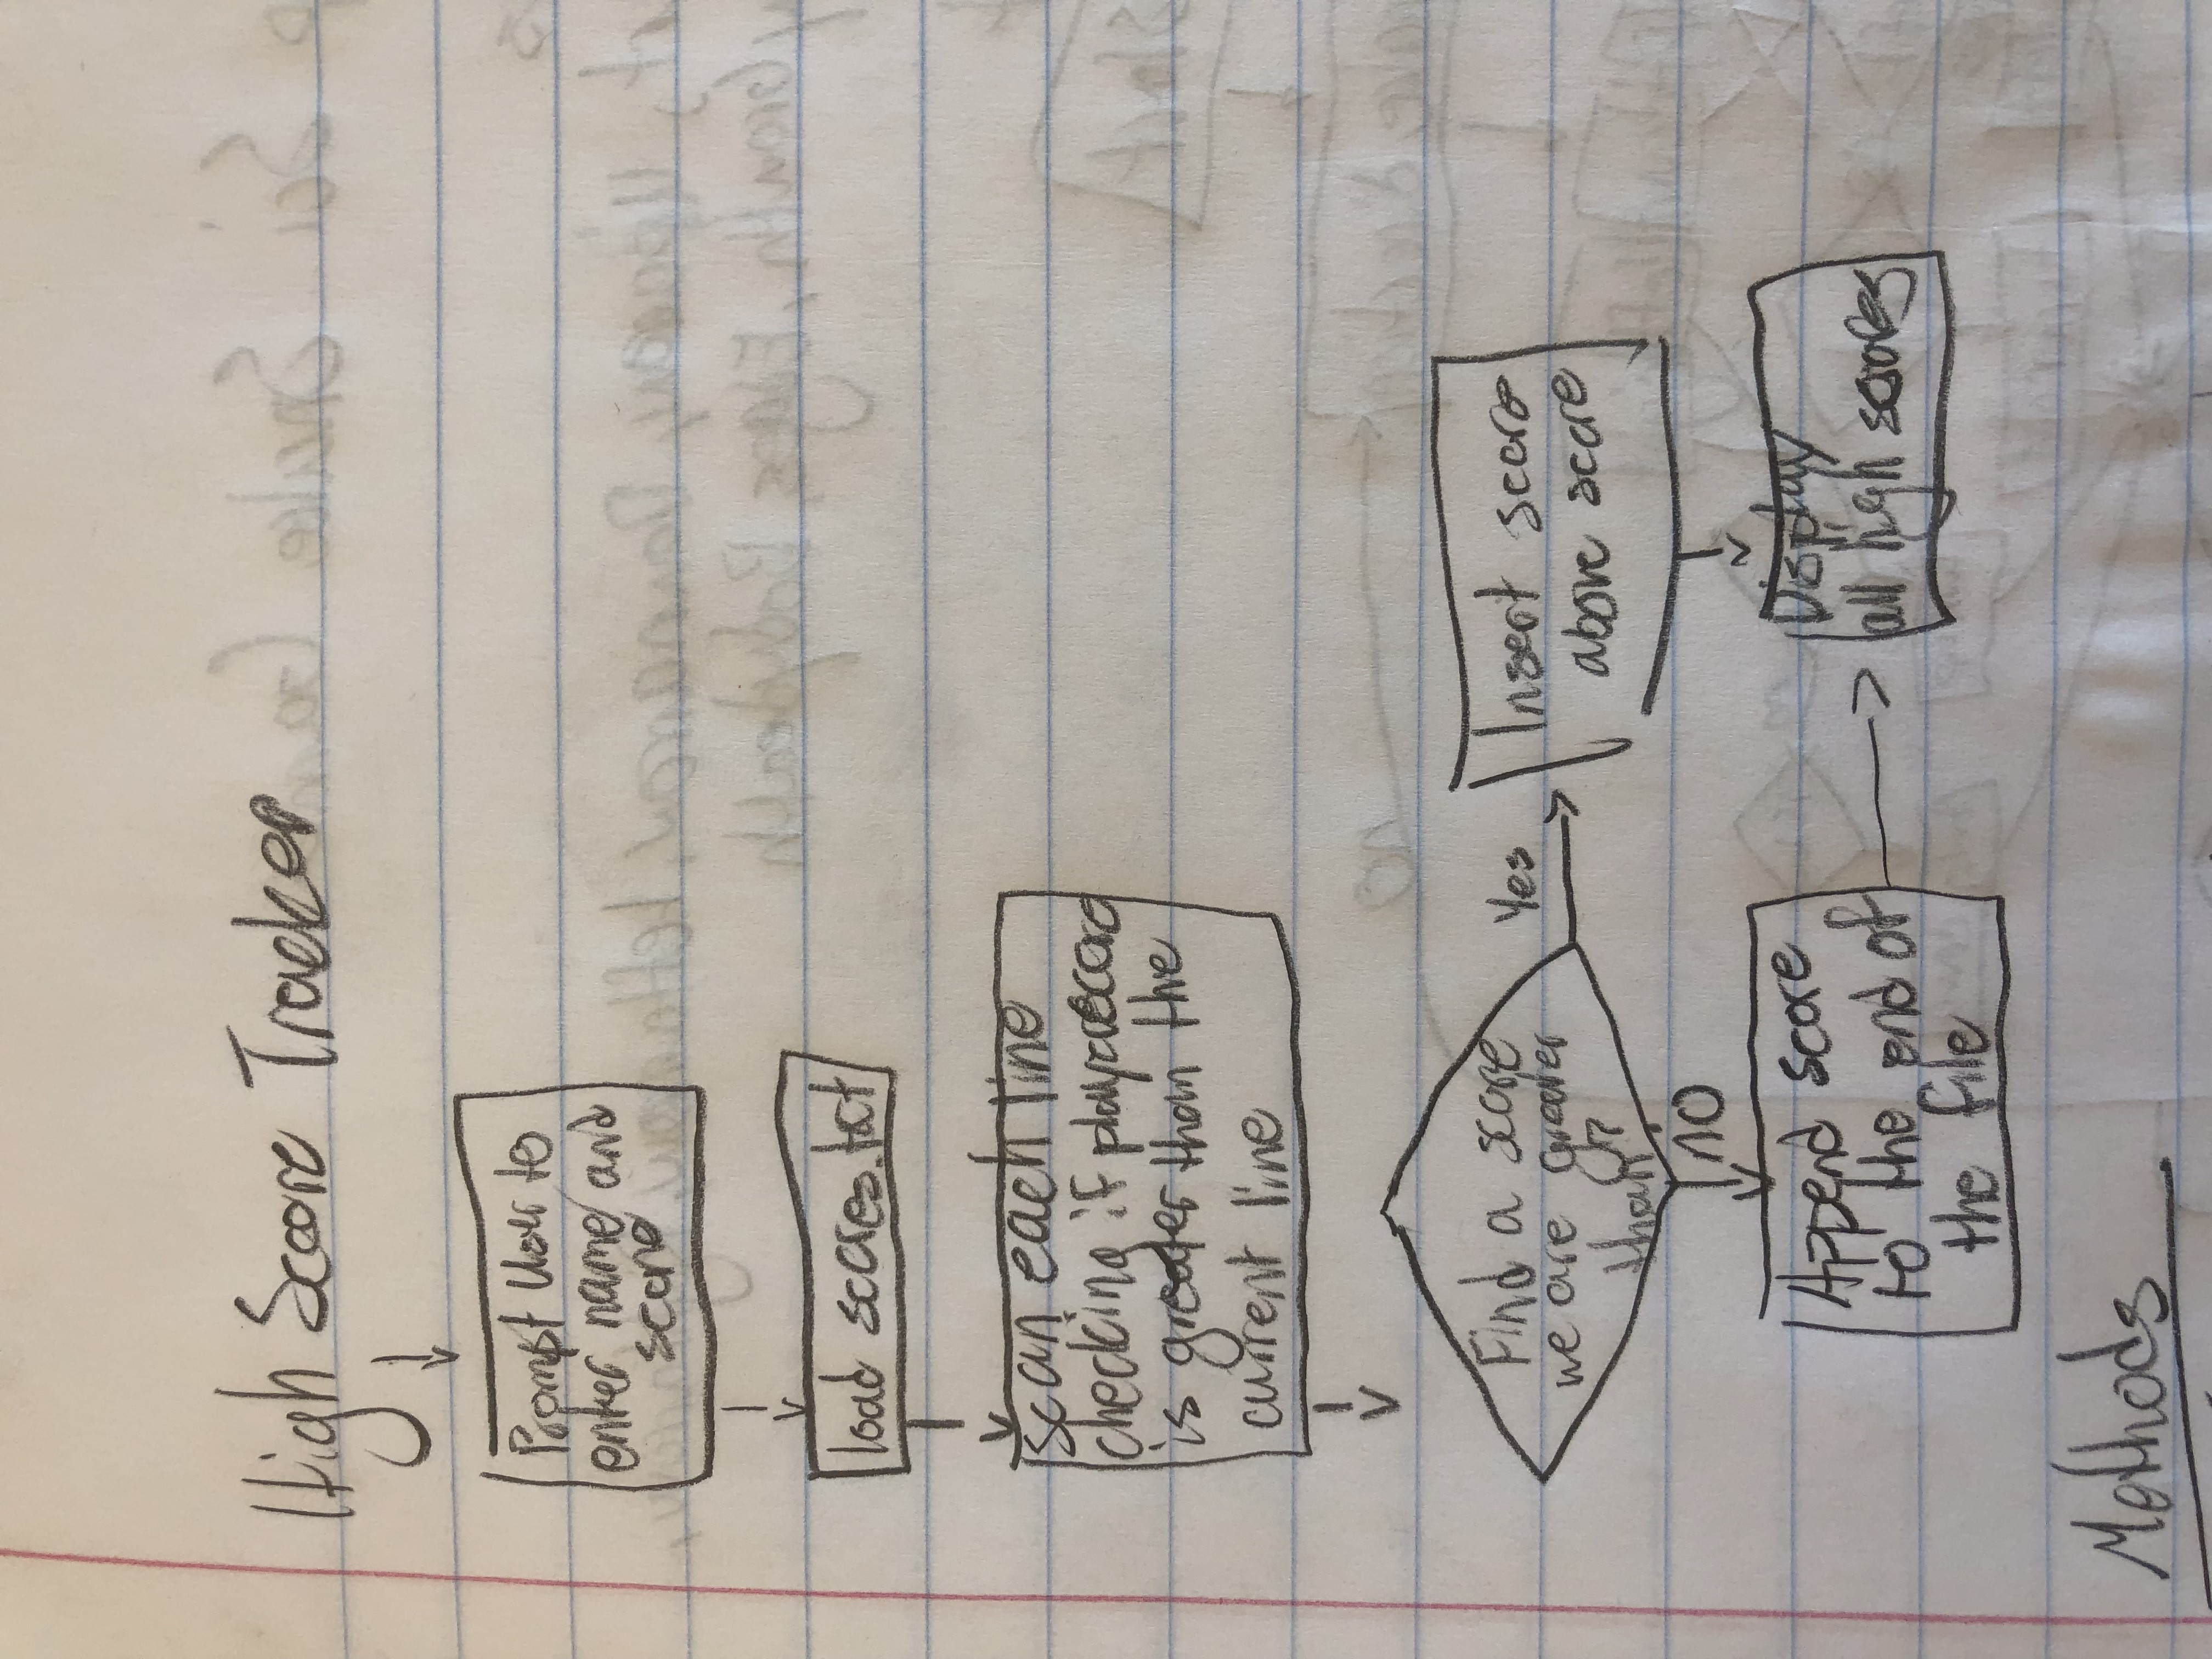 High Score Tracker
Prompt User to
enter name and
score
load scores.txt
scan each line
checking if playerecord
is greater than the
current line
Find a score
we are greater
than?
Yes
Insert score
above score
no
Append score
to the end of
the file
Display
all high scores
Methods